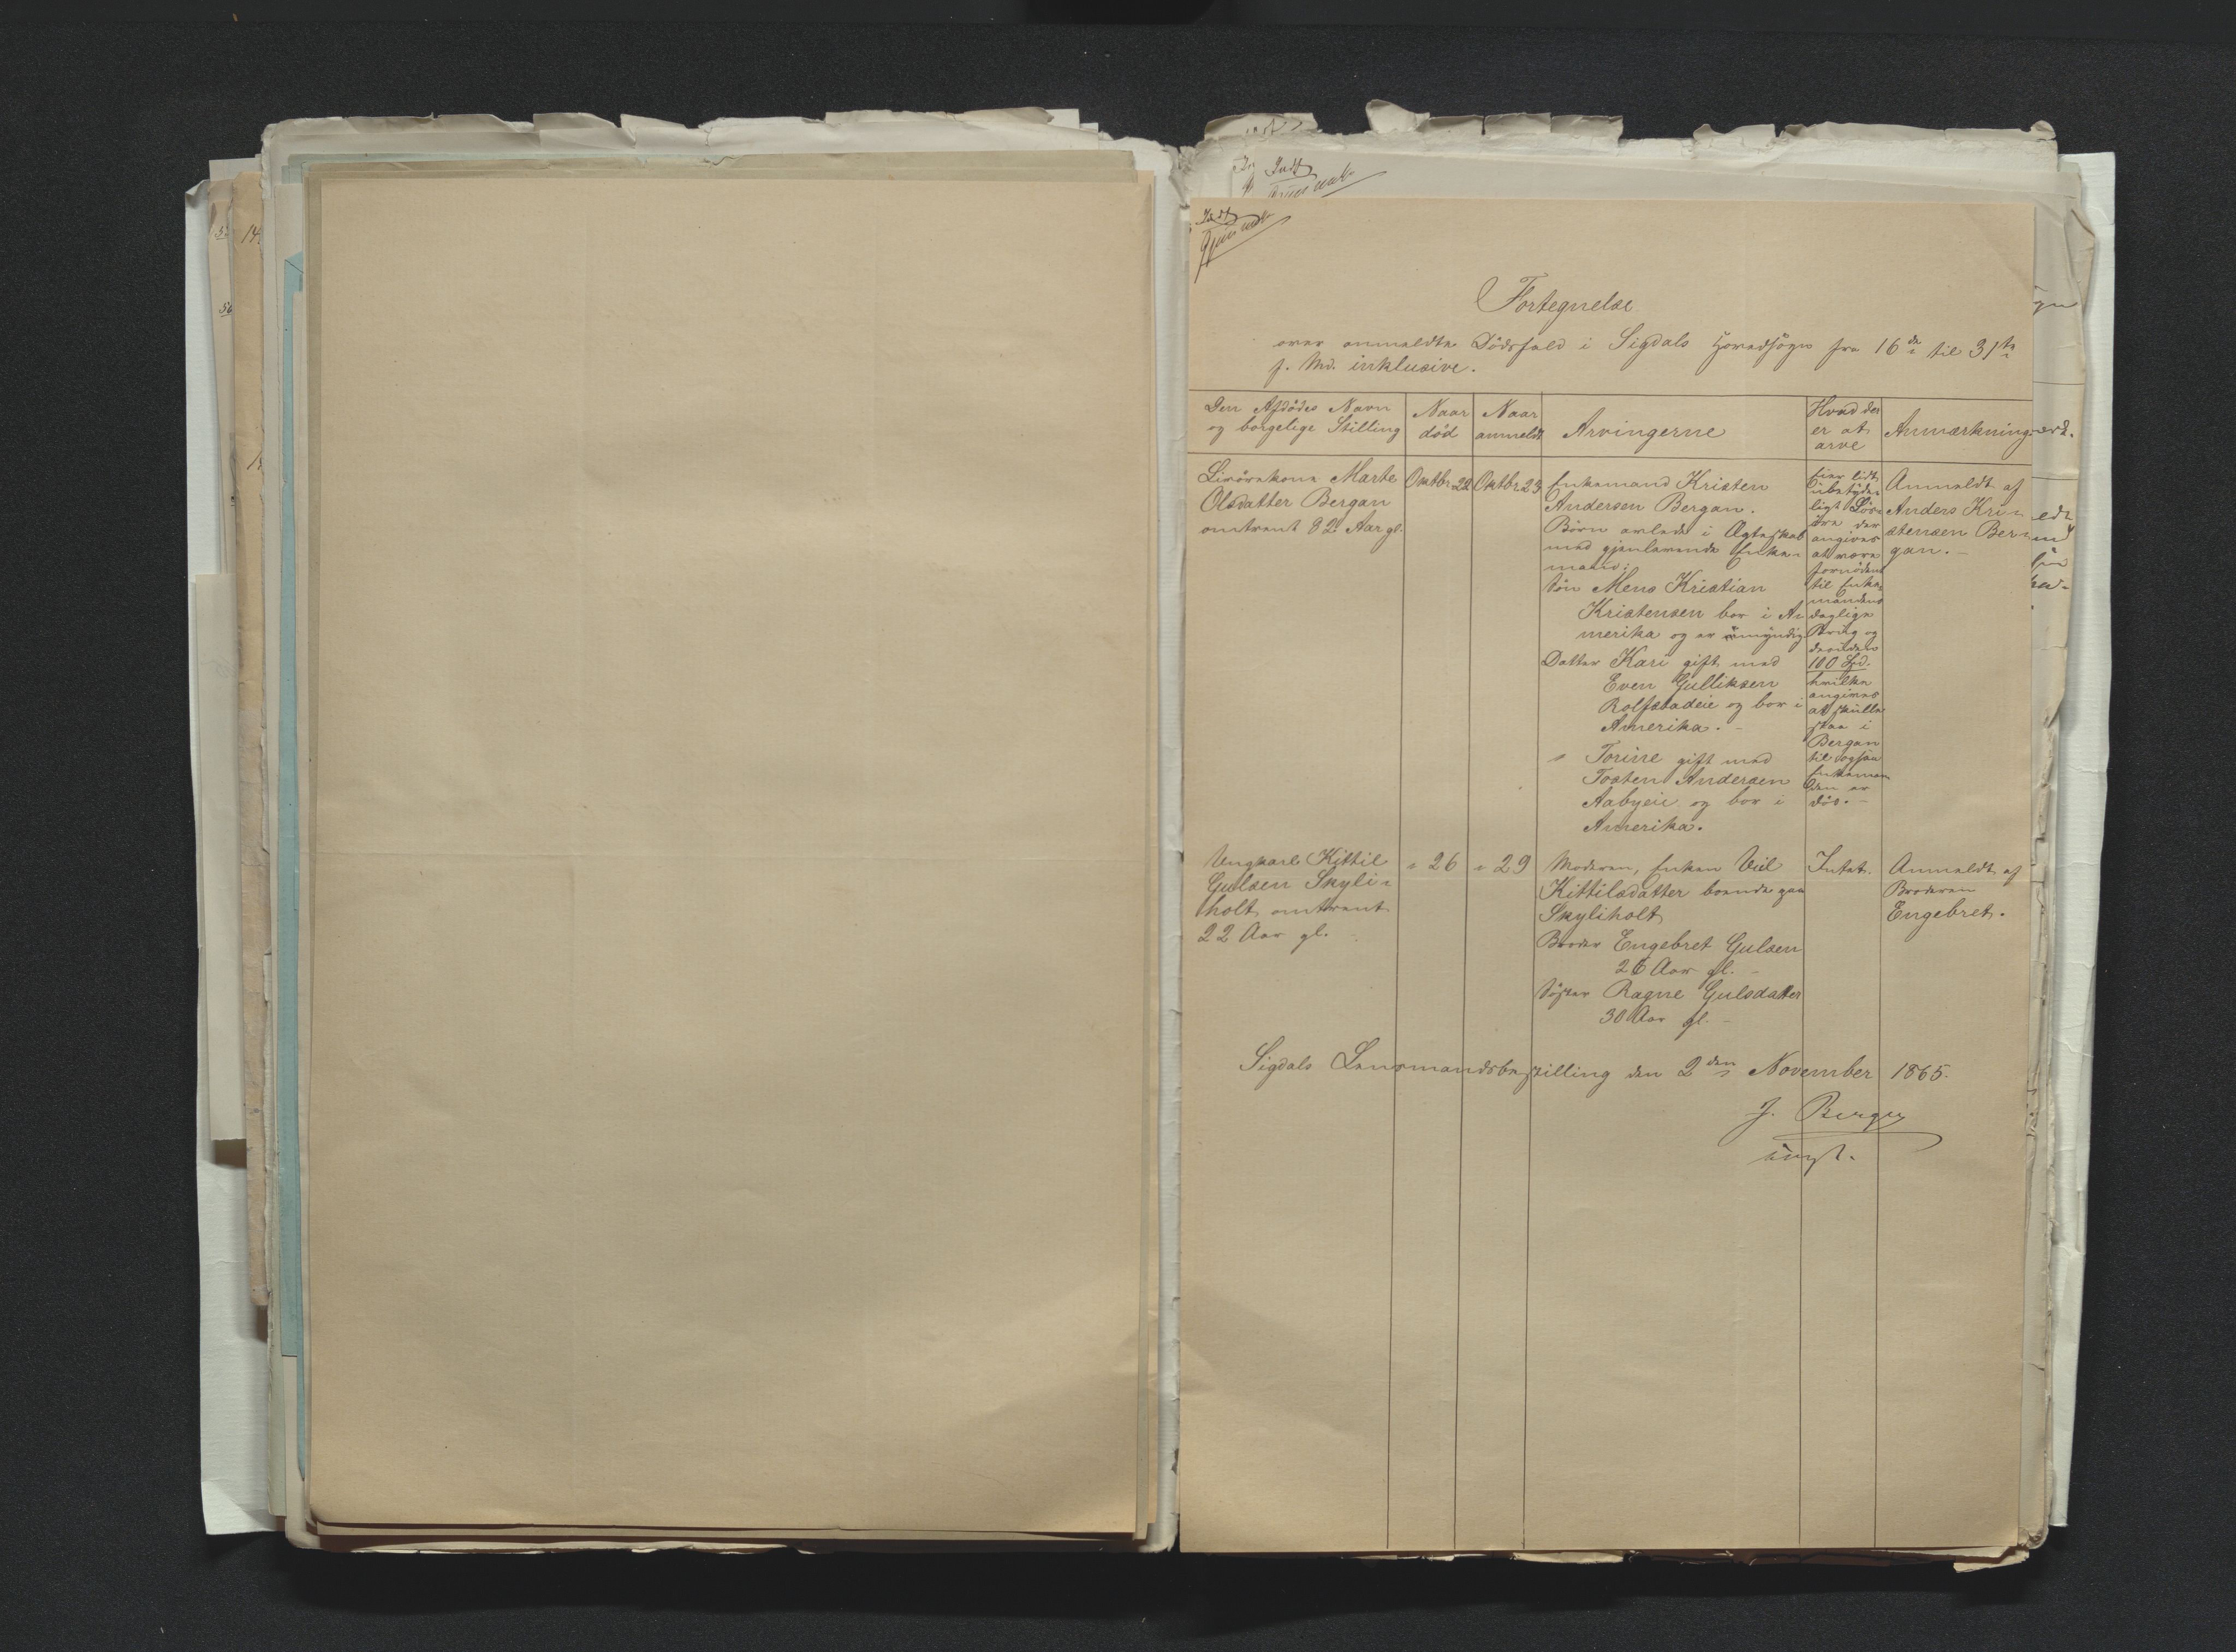 Fortegnelse
over anmeldte Dødsfald i Sigdals Hovedsogn fra 16de til 31te
f. Md. inklusive.
Den Afdødes Navn
og borgelige Stilling
Naar
død
Naar
anmeldt
Arvingerne
Hvad der
er at
arve
Anmærkning
Livørekone Marte
Olsdatter Bergan
omtrent 82 Aar gl.
Oktbr 22
Oktbr 23
Enkemand Kristen
Andersen Bergan.
Børn avlede i Ægteskab
med gjenlevende Enke-
mand:
Søn Mens Kristian
Kristensen bor i A-
merika og er myndig
Datter Kari gift med
Even Gulliksen
Rolfstadeie og bor i
Amerika. -
" Torine gift med
Tosten Andersen
Aabyeie og bor i
Amerika.
Eier lidt
ubetyde-
ligt Løs-
øre der
angives
at være
fornøden
til Enke-
mandens
daglige
Brug og
desuden
100 Spd.
hvilke
angives
at skulle
staa i
Bergan
til ogsaa
Enkeman
den er
død. -
Anmeldt af
Anders Kri-
stensen Ber-
gan. -
Ungkarl Kittil
Gulsen Skyli-
holt omtrent
22 Aar gl. -
" 26
" 29
Moderen, Enken
Kittilsdatter boende paa
Skyliholt
Broder Engebret Gulsen
26 Aar gl. -
Søster Ragne Gulsdatter
30 Aar gl. -
Intet.
Anmeldt af
Broderen
Engebret.
Sigdals Lensmandsbestilling den 2den November 1865.
J. Berger